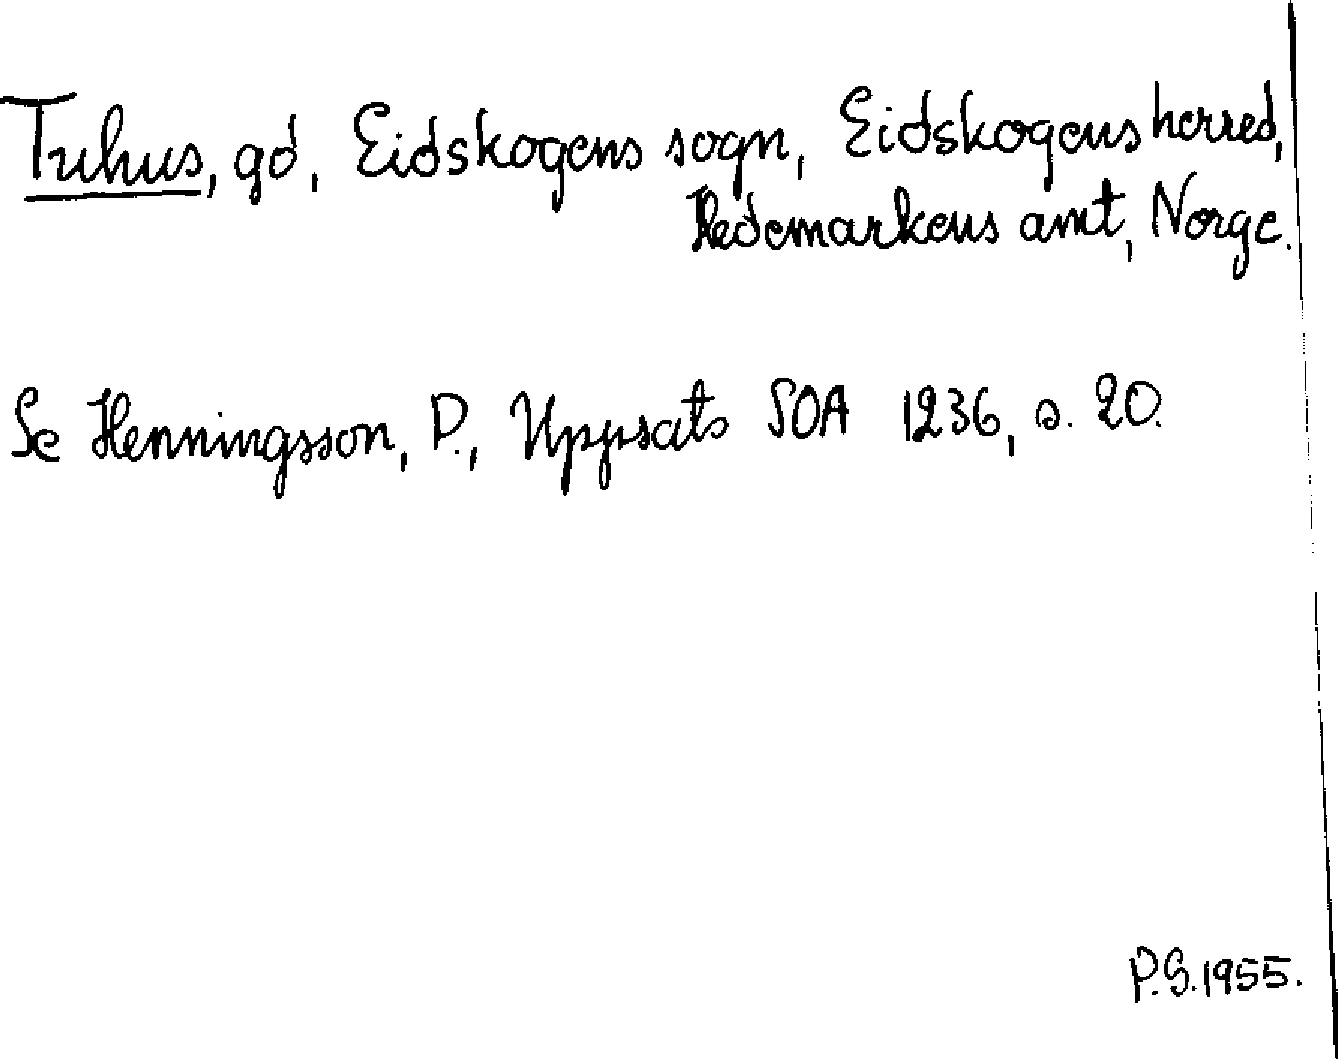 Tuhus, gd, Eidskogens sogn, Eidskogens herred,
Hedemarkens amt, Norge.
Se Henningsson, P., Uppsats SOA 1236, s. 20.
P.S. 1955.